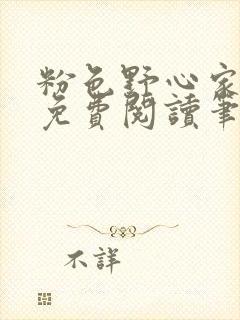 粉色野心家
免費閱讀筆
不詳